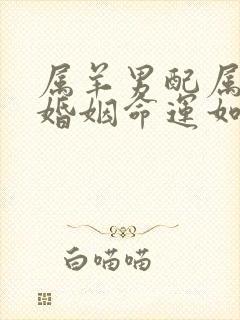 属羊男配属
婚姻命运如
白喵喵